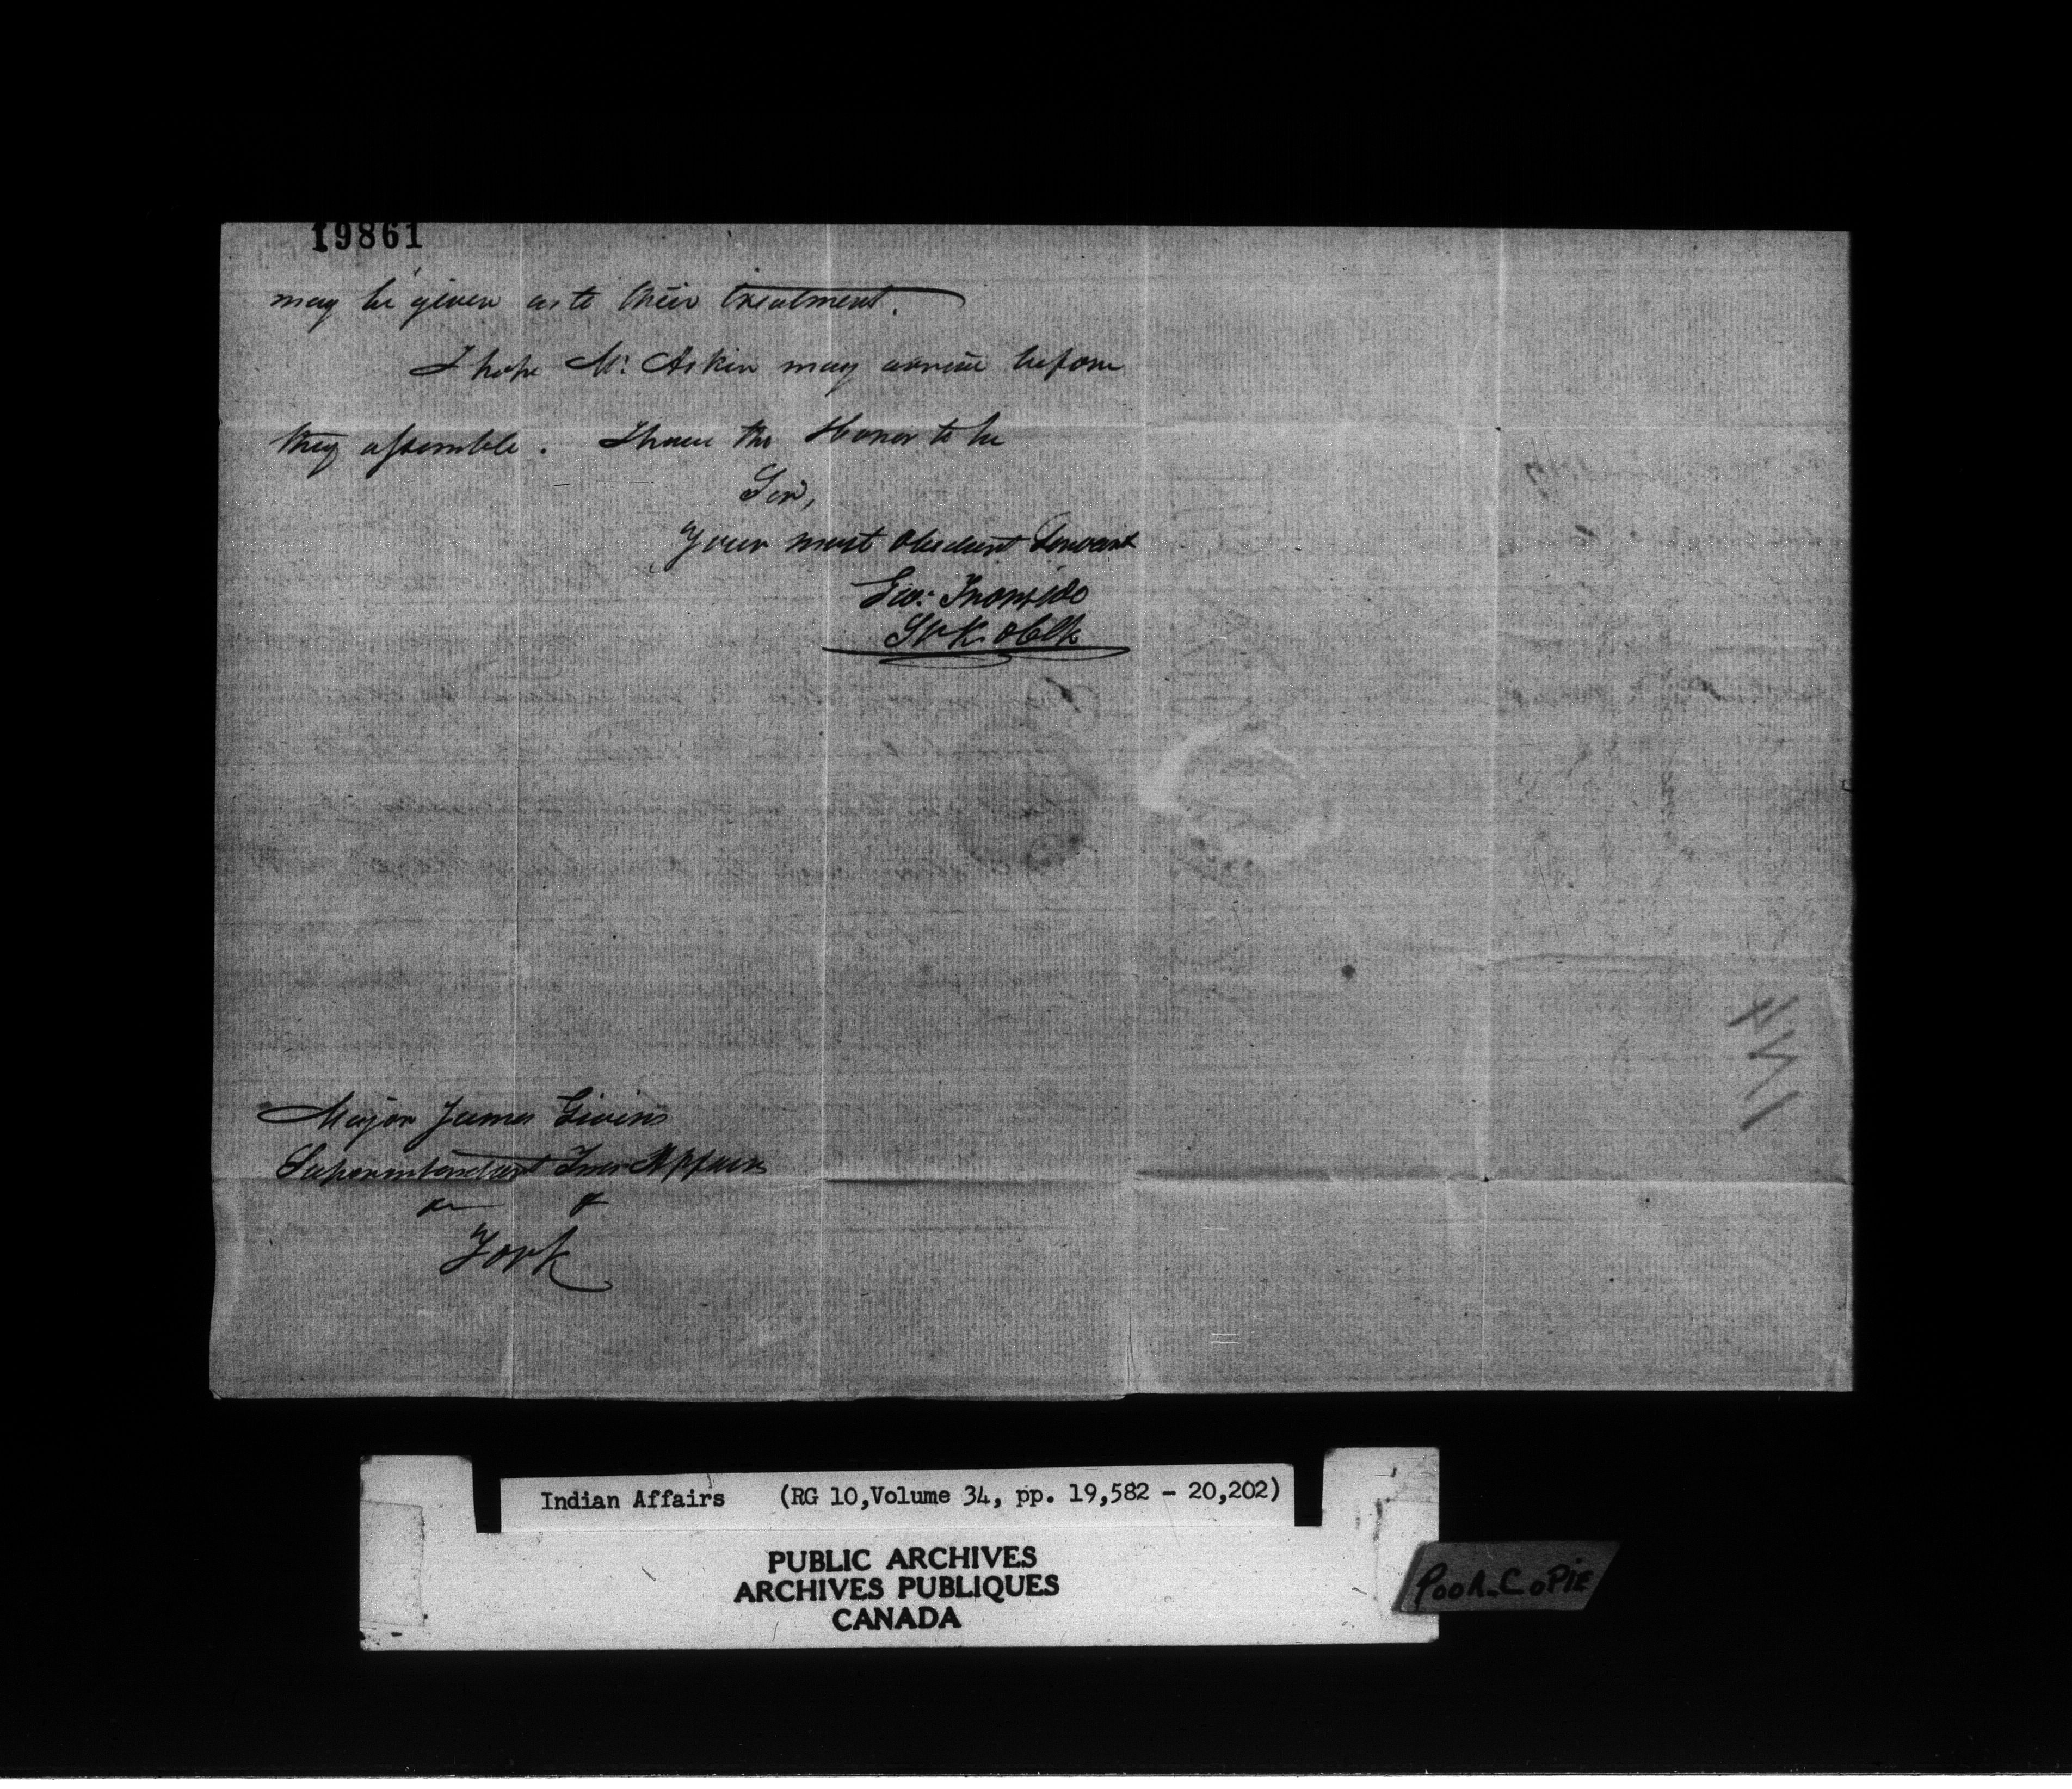 19861
may be given as to their treatment.
I hope Mr. Askin may arrive before
they assemble. I have the Honor to be
Sir,
Your most Obedient Servant
Geo: Ironside
SK & Clk
Major James Givins
Superintendent Indn Affairs
&c &c
York
Indian Affairs (RG 10, Volume 34, pp. 19,582 - 20,202)
PUBLIC ARCHIVES
ARCHIVES PUBLIQUES
CANADA
POOR COPIE